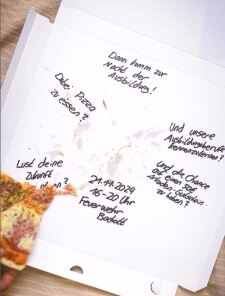 Dann komm zur
Nacht der
Ausbildung!
Dabei Pizza
zu essen?
Und unsere
Ausbildungsberufe
kennenzulernen?
Lust deine
Zukunft
Und die Chance
auf einen
zu haben?
21.11.2024
16-20 Uhr
Feuerwehr